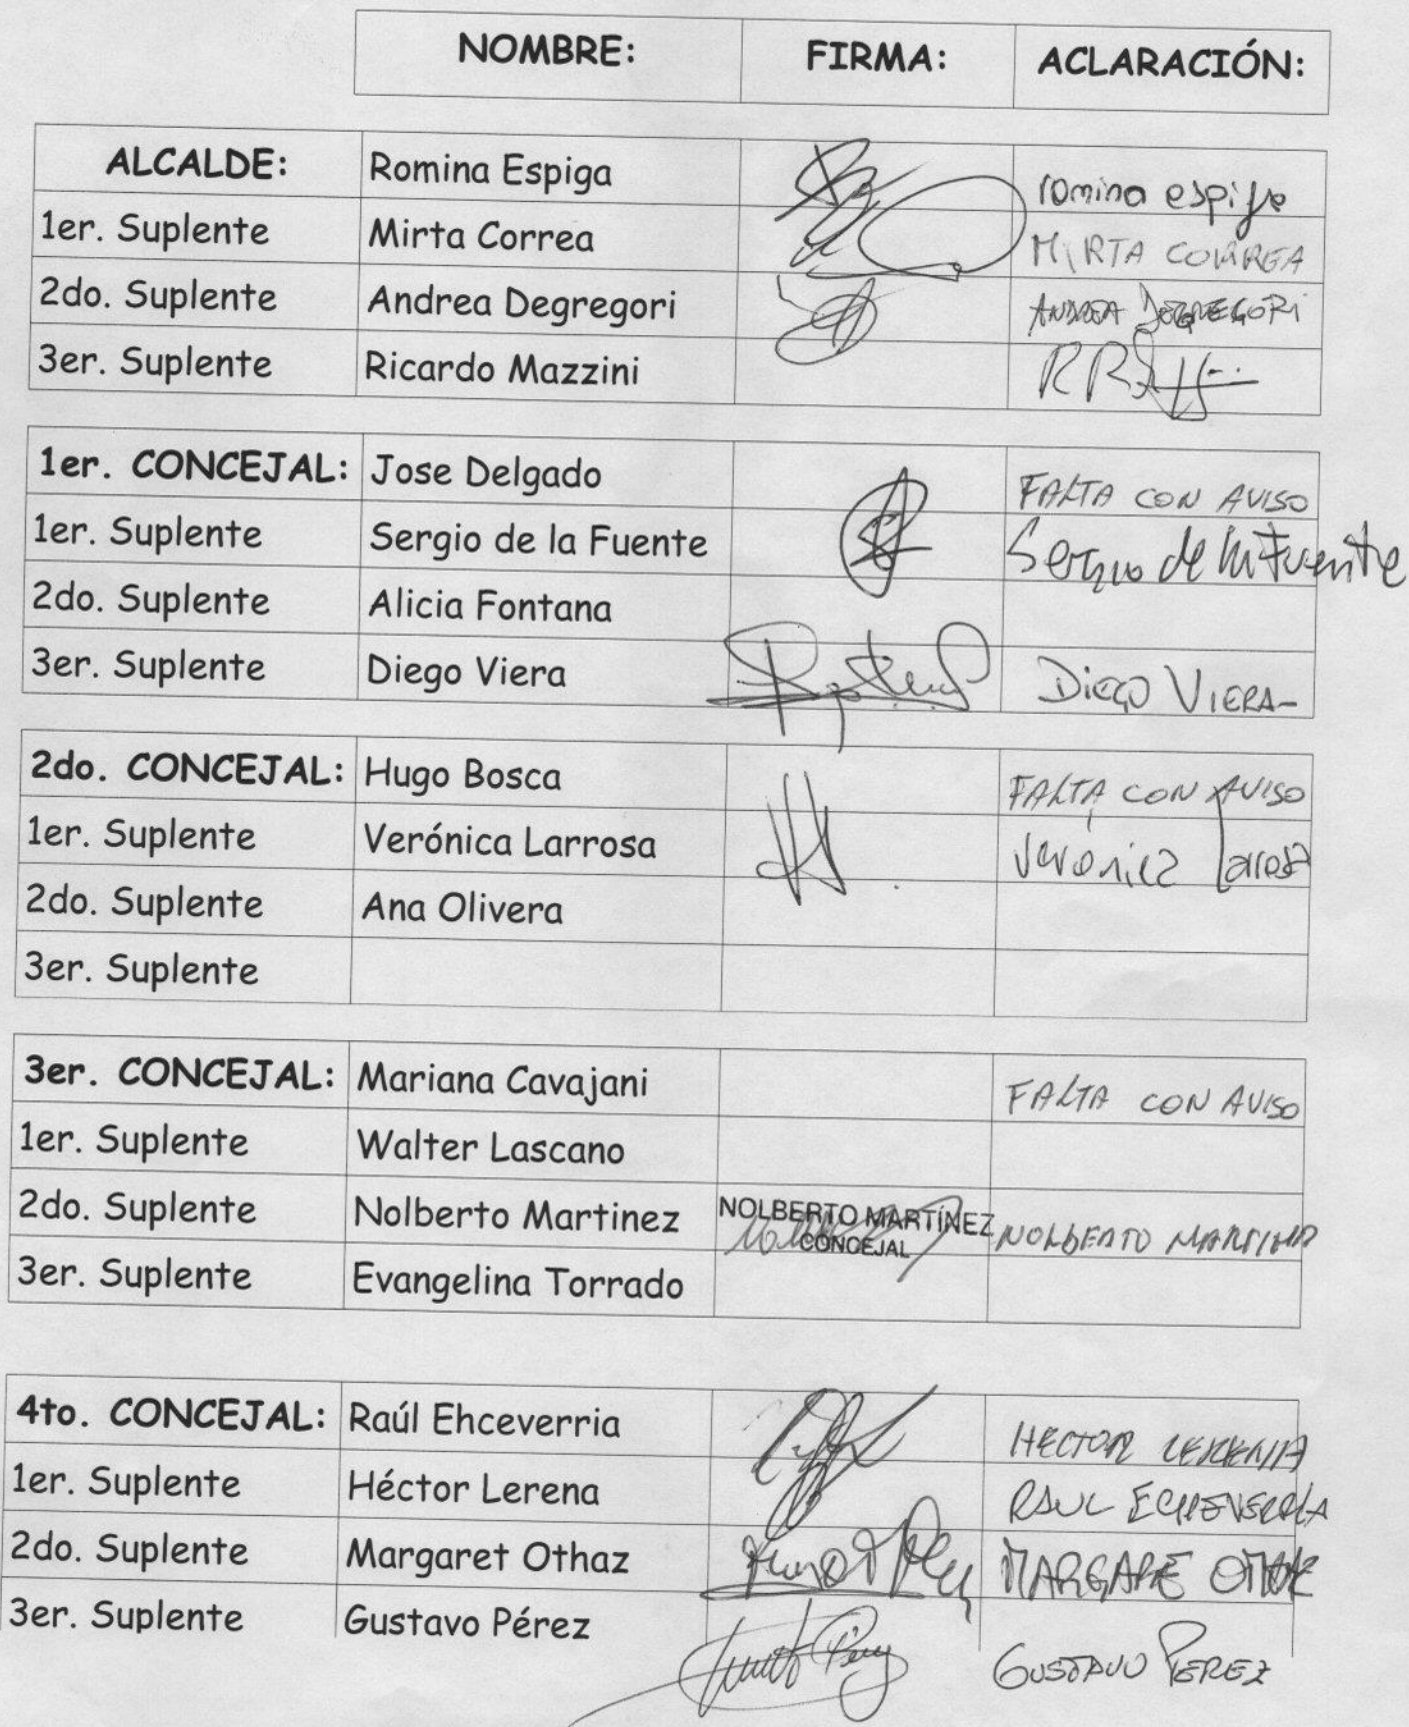 NOMBRE: FIRMA: ACLARACIÓN:
ALCALDE: Romina Espiga romina espiga
1er. Suplente Mirta Correa MIRTA CORREA
2do. Suplente Andrea Degregori ANDREA DEGREGORI
3er. Suplente Ricardo Mazzini
1er. CONCEJAL: Jose Delgado FALTA CON AVISO
1er. Suplente Sergio de la Fuente Sergio de la Fuente
2do. Suplente Alicia Fontana
3er. Suplente Diego Viera DIEGO VIERA-
2do. CONCEJAL: Hugo Bosca FALTA CON AVISO
1er. Suplente Verónica Larrosa Verónica Larrosa
2do. Suplente Ana Olivera
3er. Suplente
3er. CONCEJAL: Mariana Cavajani FALTA CON AVISO
1er. Suplente Walter Lascano
2do. Suplente Nolberto Martinez NOLBERTO MARTÍNEZ NOLBERTO MARTINEZ
CONCEJAL
3er. Suplente Evangelina Torrado
4to. CONCEJAL: Raúl Ehceverria HECTOR LERENA
1er. Suplente Héctor Lerena RAUL ECHEVERRIA
2do. Suplente Margaret Othaz MARGARE OTHAZ
3er. Suplente Gustavo Pérez GUSTAVO PEREZ